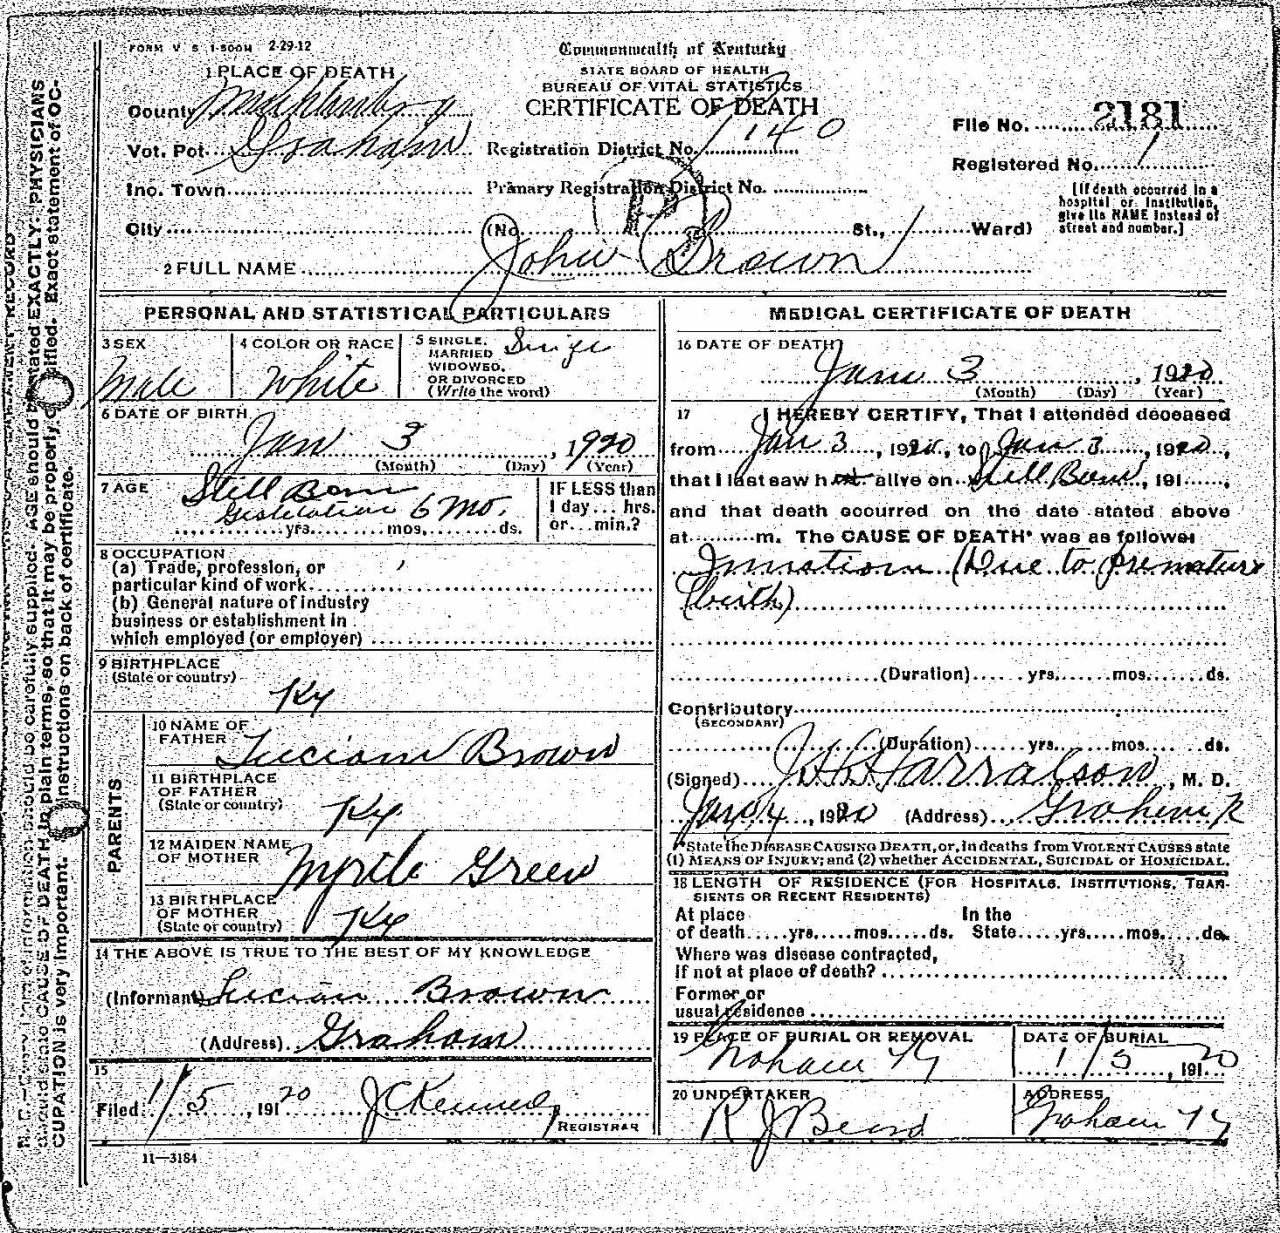 FORM V S 1-500M 2-29-12
Commonwealth of Kentucky
STATE BOARD OF HEALTH
BUREAU OF VITAL STATISTICS
CERTIFICATE OF DEATH
1 PLACE OF DEATH
County Muhlenberg
Vot. Pct. Graham
Registration District No. 1140
File No. 2181
Registered No. 1
Inc. Town
Primary Registration District No.
[If death occurred in a hospital or institution, give its NAME instead of street and number.]
City (No. St., Ward)
2 FULL NAME John Brown
PERSONAL AND STATISTICAL PARTICULARS
3 SEX Male
4 COLOR OR RACE White
5 SINGLE, MARRIED WIDOWED, OR DIVORCED (Write the word) Single
6 DATE OF BIRTH
Jan 3, 1920
(Month) (Day) (Year)
7 AGE Still Born
Gestation 6 mo.
yrs. mos. ds.
IF LESS than 1 day... hrs. or... min.?
8 OCCUPATION
(a) Trade, profession, or
particular kind of work
(b) General nature of industry
business or establishment in
which employed (or employer)
9 BIRTHPLACE
(State or country) Ky
PARENTS
10 NAME OF FATHER Lucian Brown
11 BIRTHPLACE OF FATHER (State or country) Ky
12 MAIDEN NAME OF MOTHER Myrtle Green
13 BIRTHPLACE OF MOTHER (State or country) Ky
14 THE ABOVE IS TRUE TO THE BEST OF MY KNOWLEDGE
(Informant) Lucian Brown
(Address) Graham
15
Filed 1/5, 1920 J C Kennedy
REGISTRAR
11—3184
MEDICAL CERTIFICATE OF DEATH
16 DATE OF DEATH
Jan 3, 1920
(Month) (Day) (Year)
17 I HEREBY CERTIFY, That I attended deceased
from Jan 3, 1920, to Jan 3, 1920,
that I last saw h alive on Still Born, 191
and that death occurred on the date stated above
at m. The CAUSE OF DEATH* was as follows
(Due to premature
birth)
(Duration) yrs. mos. ds.
Contributory
(SECONDARY)
(Duration) yrs. mos. ds.
(Signed) Harralson, M. D.
Jan 4, 1920 (Address) Graham K
*State the DISEASE CAUSING DEATH, or, in deaths from VIOLENT CAUSES state
(1) MEANS OF INJURY; and (2) whether ACCIDENTAL, SUICIDAL or HOMICIDAL.
18 LENGTH OF RESIDENCE (FOR HOSPITALS, INSTITUTIONS, TRAN-
SIENTS OR RECENT RESIDENTS)
At place In the
of death yrs. mos. ds. State yrs. mos. ds.
Where was disease contracted,
If not at place of death?
Former or
usual residence
19 PLACE OF BURIAL OR REMOVAL
Graham Ky
DATE OF BURIAL
1/5, 1920
20 UNDERTAKER
R J Beard
ADDRESS
Graham Ky
AGE should be stated EXACTLY. PHYSICIANS
should state CAUSE OF DEATH in plain terms, so that it may be properly classified. Exact statement of OC-
CUPATION is very important. Instructions on back of certificate.